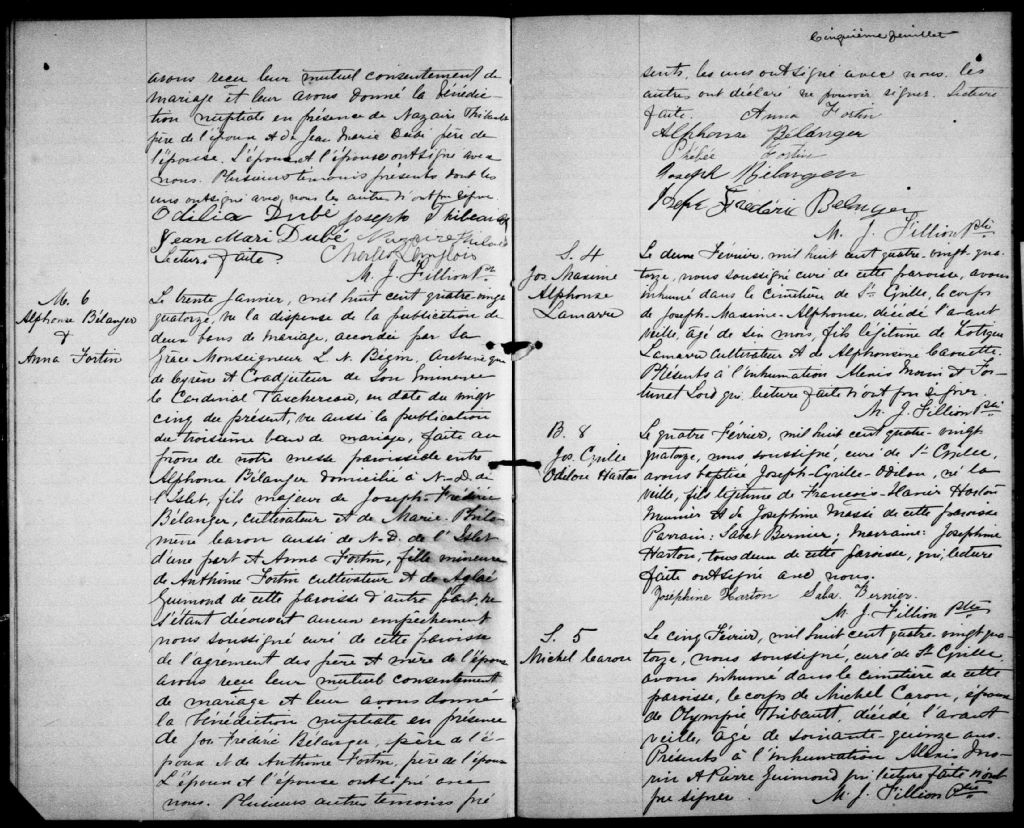 avons reçu leur mutuel consentement de
mariage et leur avons donné la bénédic-
tion nuptiale en présence de Nazaire Thibault
père de l'époux et de Jean Marie Dubé père de
l'épouse. L'époux et l'épouse ont signé avec
nous. Plusieurs témoins présents dont les
uns ont signé avec nous les autres n'ont pu signer.
Odilia Dubé Joseph Thibault
Jean Mari Dubé Nazaire Thibault
Lecture faite. Charles Langlois
M. J. Fillion Ptre
M. 6
Alphonse Bélanger
&
Anna Fortin
Le trente Janvier, mil huit cent quatre-vingt
quatorze, vu la dispense de la publication de
deux bans de mariage, accordée par Sa
Grâce Monseigneur L. N. Bégin, archevêque
de Cyrène et Coadjuteur de Son Eminence
le Cardinal Taschereau, en date du vingt
cinq du présent, vu aussi la publication
du troisième ban de mariage, faite au
prône de notre messe paroissiale entre
Alphonse Bélanger domicilié à N.-D. de
l'Islet, fils majeur de Joseph-Frédéric
Bélanger, cultivateur et de Marie-Philo-
mène Caron aussi de N.D. de l'Islet
d'une part et Anna Fortin, fille mineure
de Anthime Fortin cultivateur et de Aglaé
Guimond de cette paroisse d'autre part, ne
s'étant découvert aucun empêchement
nous soussigné curé de cette paroisse
de l'agrément des père et mère de l'épouse
avons reçu leur mutuel consentement
de mariage et leur avons donné
la bénédiction nuptiale en présence
de Jos Frédéric Bélanger, père de l'é-
poux et de Anthime Fortin, père de l'épouse
L'époux et l'épouse ont signé avec
nous. Plusieurs autres témoins pré
Cinquième feuillet
sents, les uns ont signé avec nous. les
autres ont déclaré ne pouvoir signer. Lecture
faite. Anna Fortin
Alphonse Bélanger
Fortin
Joseph Bélanger
Joseph Frédéric Belanger
M. J. Fillion Ptre
S. 4
Jos Maxime
Alphonse
Lamarre
Le deux Février, mil huit cent quatre-vingt-qua-
torze, nous soussigné curé de cette paroisse, avons
inhumé dans le cimetière de St Cyrille, le corps
de Joseph-Maxime-Alphonse, décédé l'avant
veille, âgé de six mois, fils légitime de
Lamarre cultivateur et de Alphonsine Caouette.
Présents à l'inhumation Alexis Morin et For-
tunat Lord qui, lecture faite n'ont pu signer.
M. J. Fillion Ptre
B. 8
Jos Cyrille
Odilon Harton
Le quatre Février, mil huit cent quatre-vingt
quatorze, nous soussigné, curé de St-Cyrille,
avons baptisé Joseph-Cyrille-Odilon, né la
veille, fils légitime de François-Xavier Harton
Meunier et de Josephine Massé de cette paroisse
Parrain: Sabat Bernier; Marraine: Josephine
Harton, tous deux de cette paroisse, qui, lecture
faite ont signé avec nous.
Joséphine Harton Saba. Bernier.
M. J. Fillion Ptre
S. 5
Michel Caron
Le cinq Février, mil huit cent quatre-vingt qua-
torze, nous soussigné, curé de St Cyrille
avons inhumé dans le cimetière de cette
paroisse, le corps de Michel Caron, époux
de Olympie Thibault, décédé l'avant
veille, âgé de soixante-quinze ans.
Présents à l'inhumation Alexis Mo-
rin et Pierre Guimond qui lecture faite n'ont
pu signer. M. J. Fillion Ptre